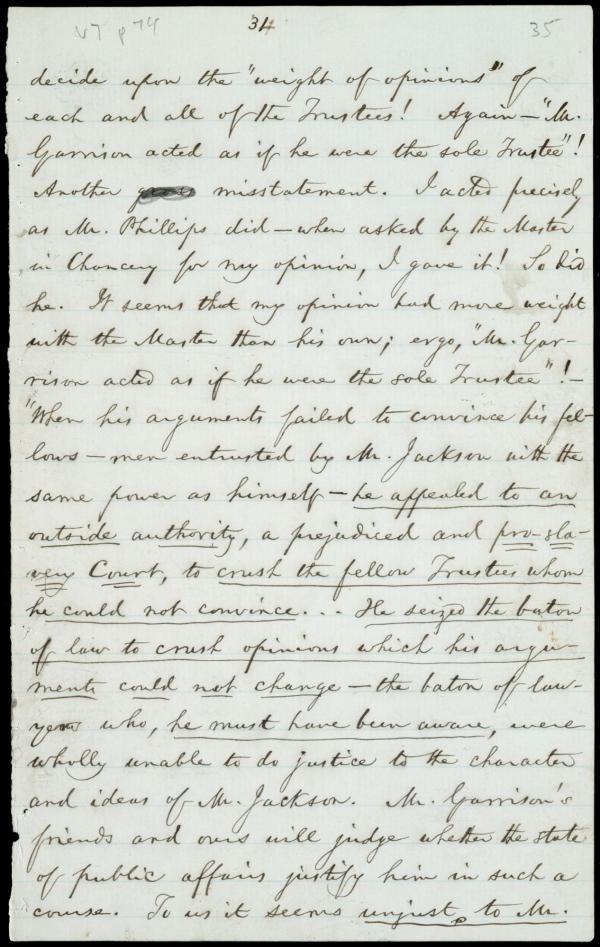 v7 p74
34
35
decide upon the "weight of opinions" of
each and all of the Trustees! Again—"Mr.
Garrison acted as if he were the sole Trustee"!
Another misstatement. I acted precisely
as Mr. Phillips did—when asked by the Master
in Chancery for my opinion, I gave it! So did
he. It seems that my opinion had more weight
with the Master than his own; ergo, "Mr. Gar-
rison acted as if he were the sole Trustee"!—
"When his arguments failed to convince his fel-
lows—men entrusted by Mr. Jackson with the
same power as himself—he appealed to an
outside authority, a prejudiced and pro-sla-
very Court, to crush the fellow Trustees whom
he could not convince... He seized the baton
of law to crush opinions which his argu-
ments could not change—the baton of law-
yers who, he must have been aware, were
wholly unable to do justice to the character
and ideas of Mr. Jackson. Mr. Garrison's
friends and ours will judge whether the state
of public affairs justify him in such a
course. To us it seems unjust to Mr.